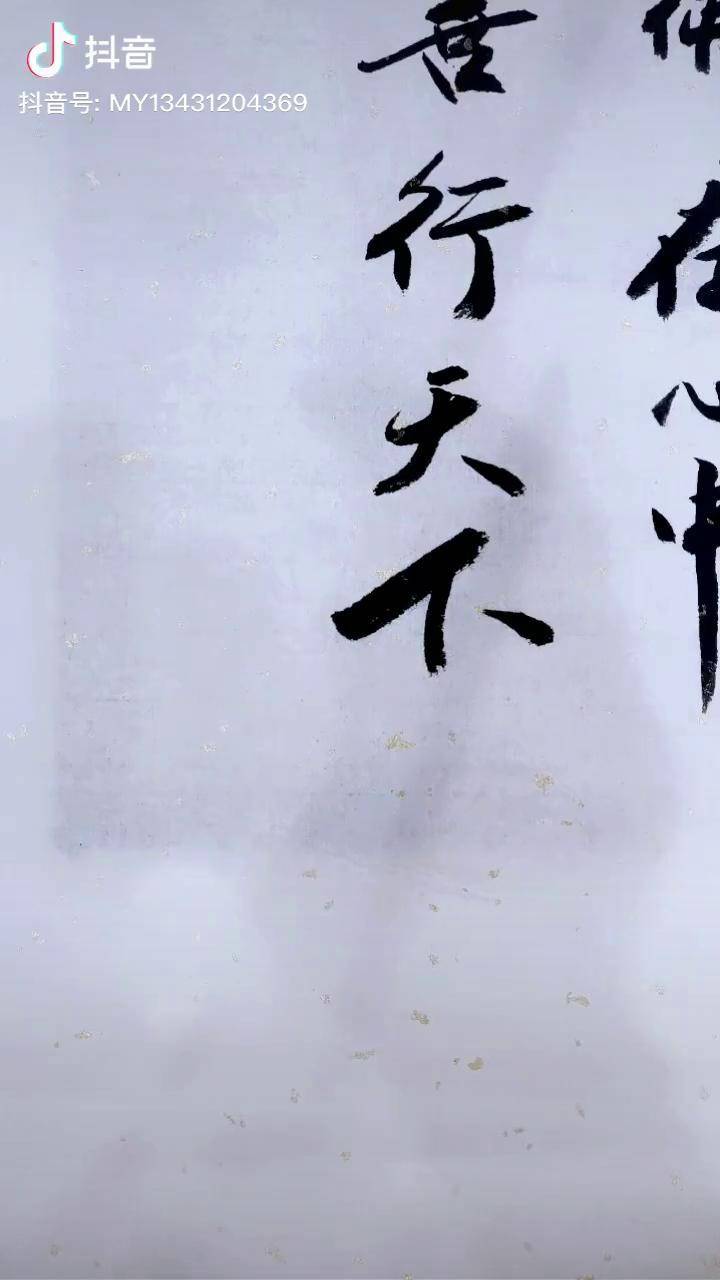 抖音
抖音号: MY13431204369
佛在心中
善行天下